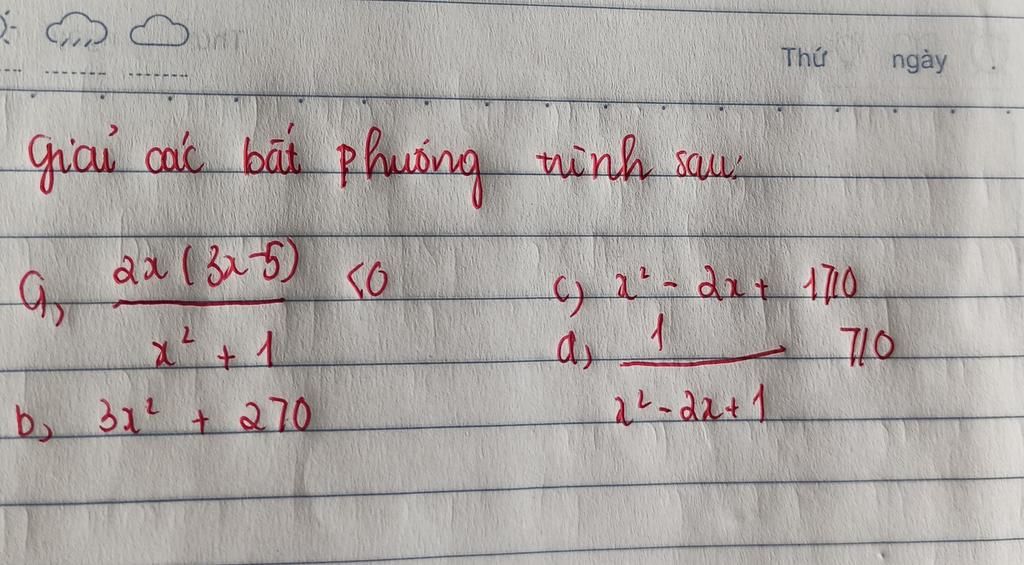 Thứ ngày
Giải các bất phương trình sau:
a, 2x(3x-5) / x² + 1 <0
b, 3x² + 2>0
c) x² - 2x + 1≥0
d, 1 / x² - 2x + 1 ≥0